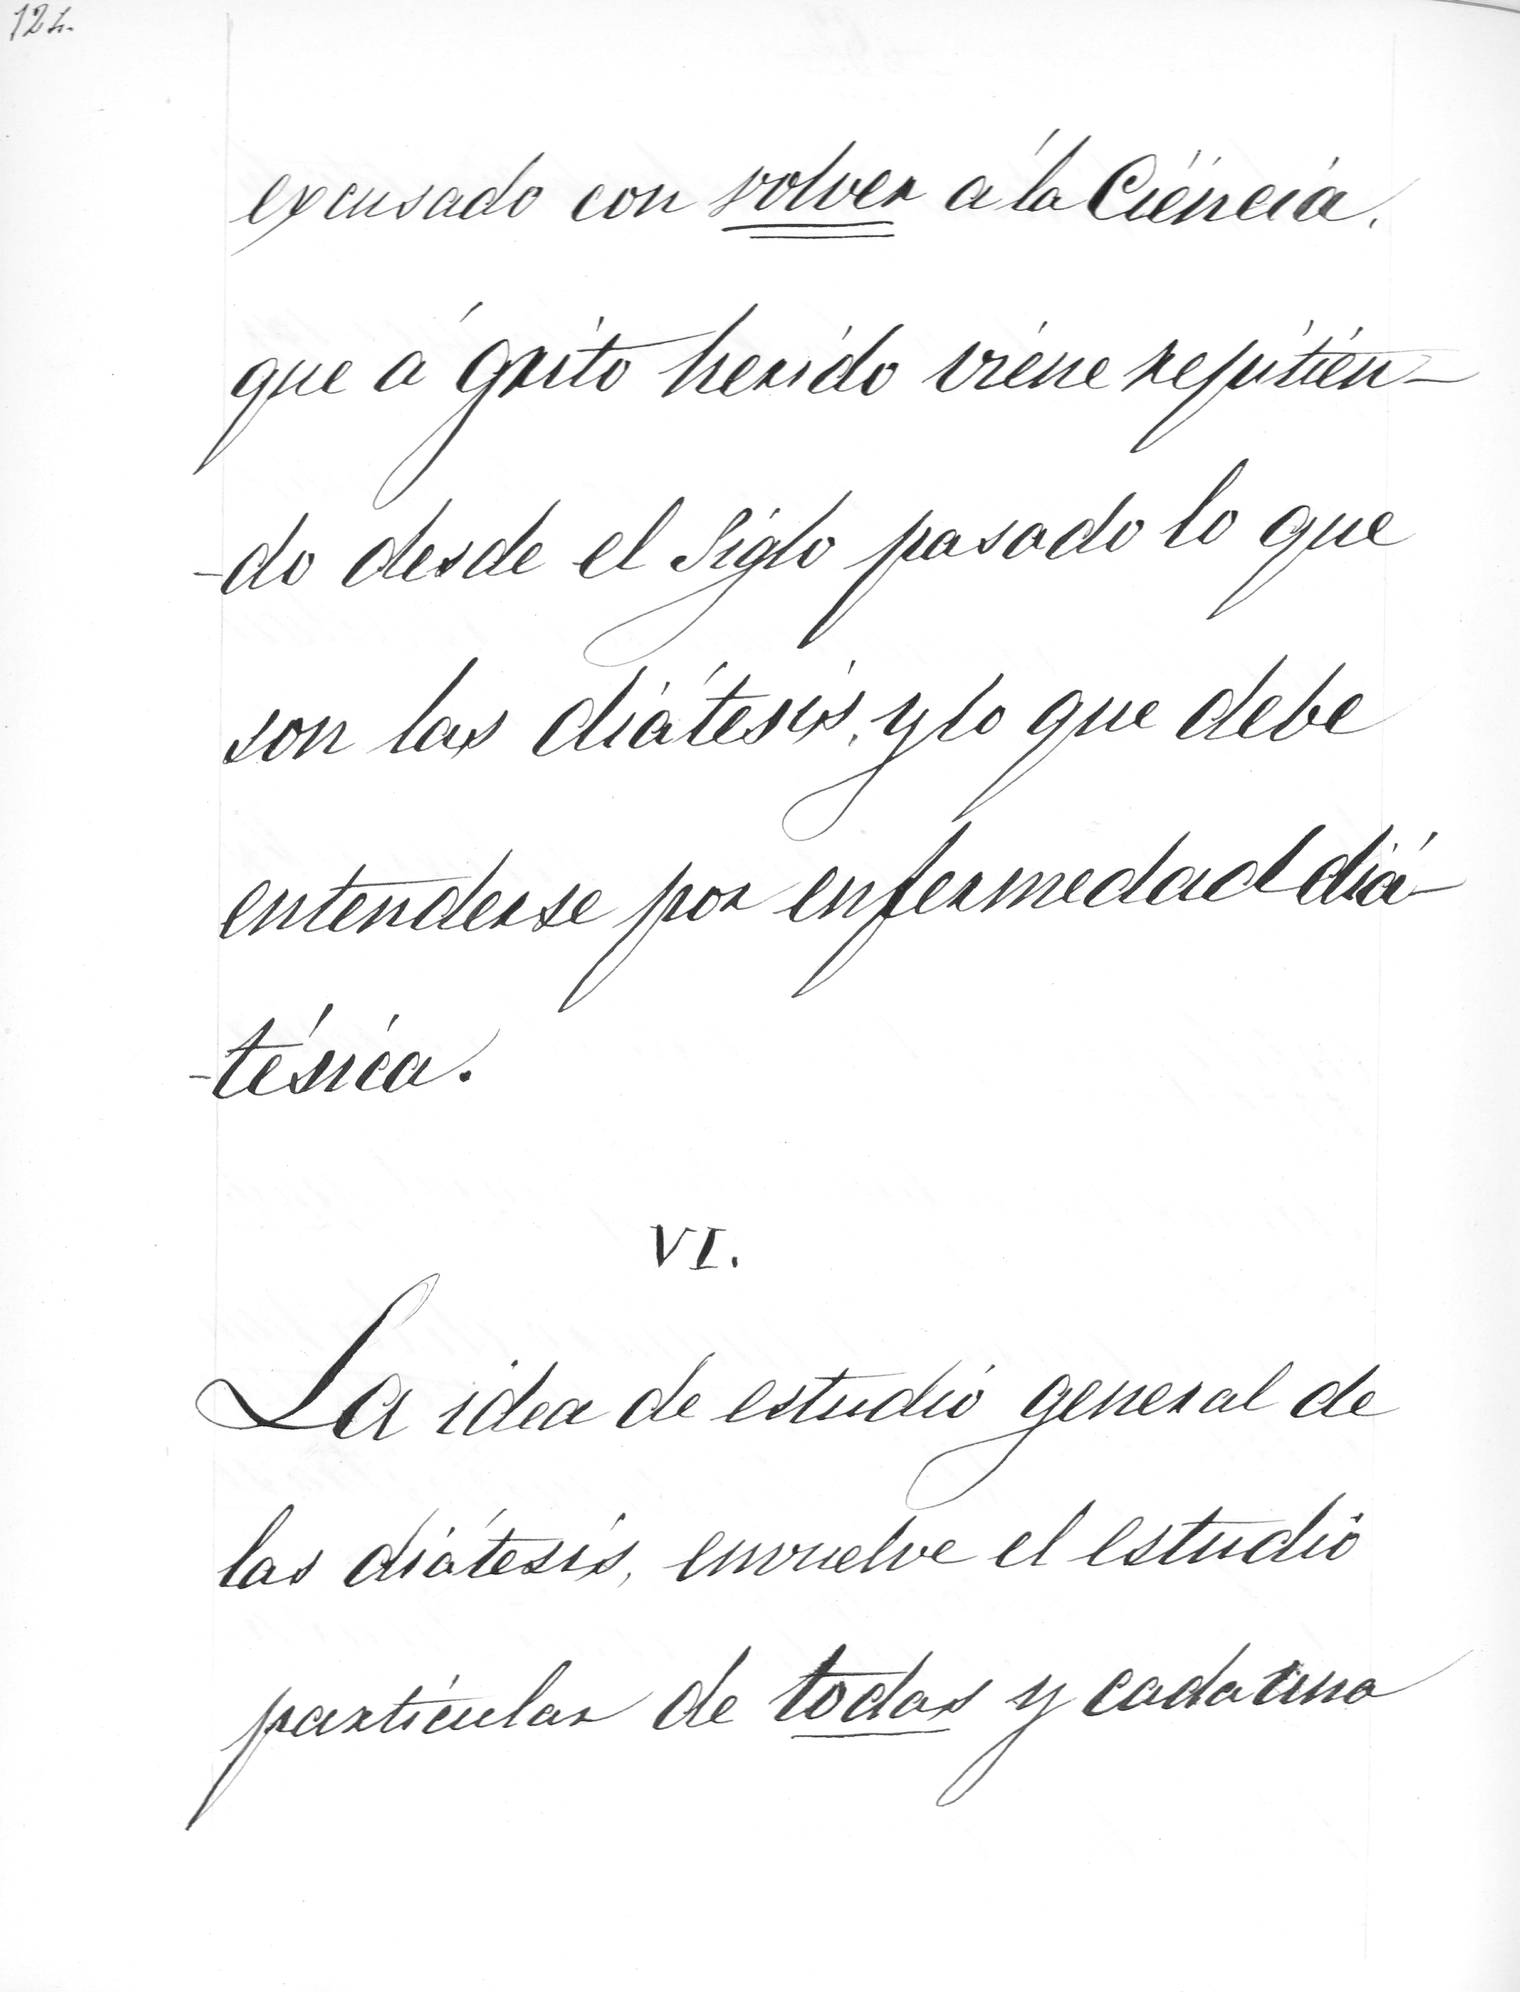 124.
excusado con volver á la Ciéncia,
que á grito herido viene repitién-
-do desde el Siglo pasado lo que
son las diátesis, y lo que debe
entenderse por enfermedad diá-
-tésica.
VI.
La idea de estudio general de
las diátesis, envuelve el estudio
particular de todas y cada una